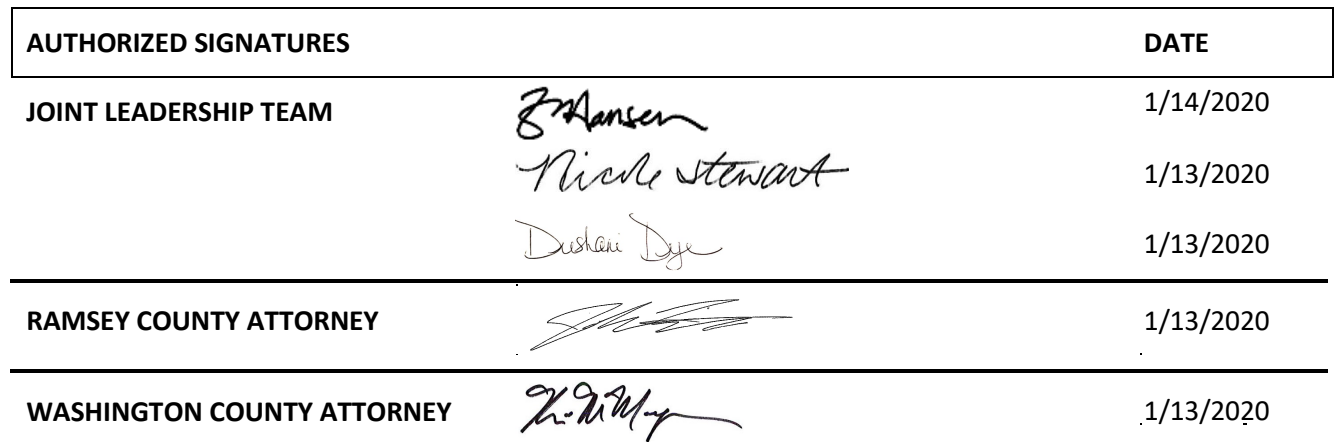 AUTHORIZED SIGNATURES DATE
JOINT LEADERSHIP TEAM Hansen 1/14/2020
Nicole Stewart 1/13/2020
Dushani Dye 1/13/2020
RAMSEY COUNTY ATTORNEY 1/13/2020
WASHINGTON COUNTY ATTORNEY 1/13/2020